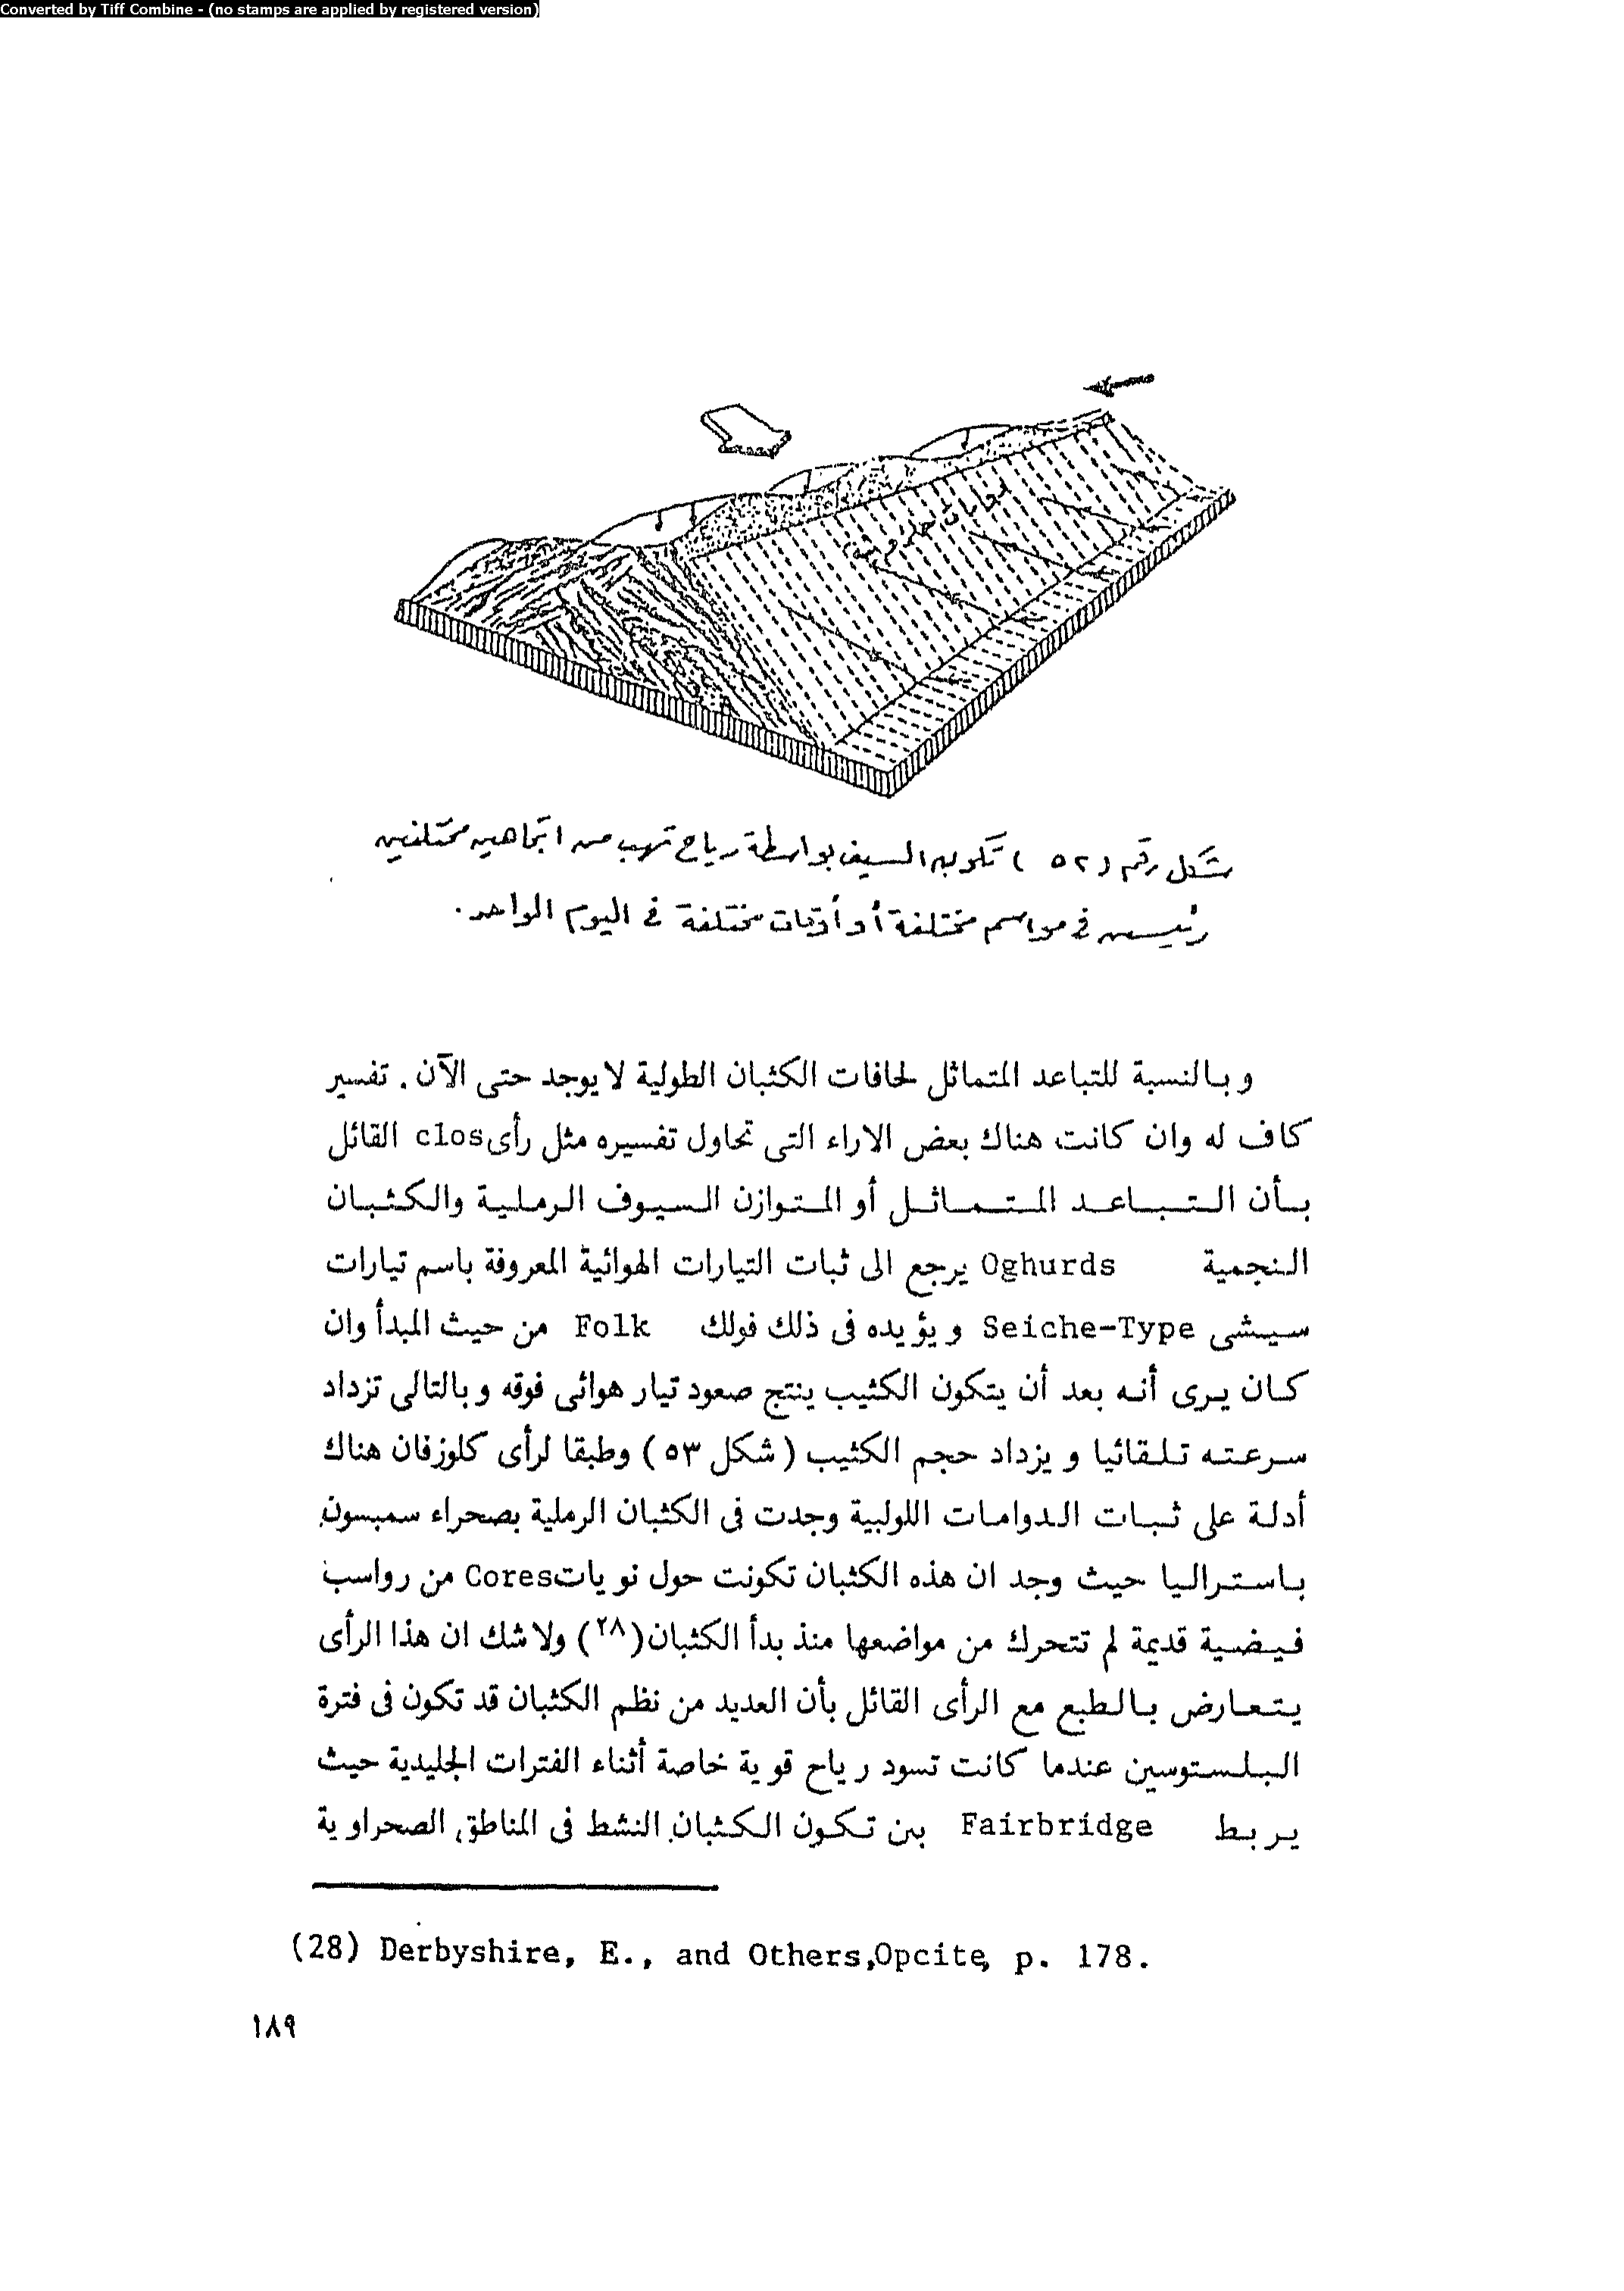 Converted by Tiff Combine - (no stamps are applied by registered version)
شكل رقم (٥٢) تكوين السيف بواسطة رياح تهب من اتجاهين مختلفين
رئيسين فى مواسم مختلفة أو أوقات مختلفة فى اليوم الواحد.
وبالنسبة للتباعد المتماثل لحافات الكثبان الطولية لا يوجد حتى الآن . تفسير
كاف له وان كانت هناك بعض الاراء التى تحاول تفسيره مثل رأى clos القائل
بأن التباعد المتماثل أو المتوازن السيوف الرملية والكثبان
النجمية Oghurds يرجع الى ثبات التيارات الهوائية المعروفة باسم تيارات
سيشى Seiche-Type ويؤيده فى ذلك فولك Folk من حيث المبدأ وان
كان يرى أنه بعد أن يتكون الكثيب ينتج صعود تيار هوائى فوقه وبالتالى تزداد
سرعته تلقائيا ويزداد حجم الكثيب (شكل ٥٣) وطبقا لرأى كلوزفان هناك
أدلة على ثبات الدوامات اللولبية وجدت فى الكثبان الرملية بصحراء سمبسون
باستراليا حيث وجد ان هذه الكثبان تكونت حول نويات Cores من رواسب
فيضية قديمة لم تتحرك من مواضعها منذ بدأ الكثبان(٢٨) ولا شك ان هذا الرأى
يتعارض بالطبع مع الرأى القائل بأن العديد من نظم الكثبان قد تكون فى فترة
البلستوسين عندما كانت تسود رياح قوية خاصة أثناء الفترات الجليدية حيث
يربط Fairbridge بين تكون الكثبان النشط فى المناطق الصحراوية
(28) Derbyshire, E., and Others,Opcite, p. 178.
١٨٩